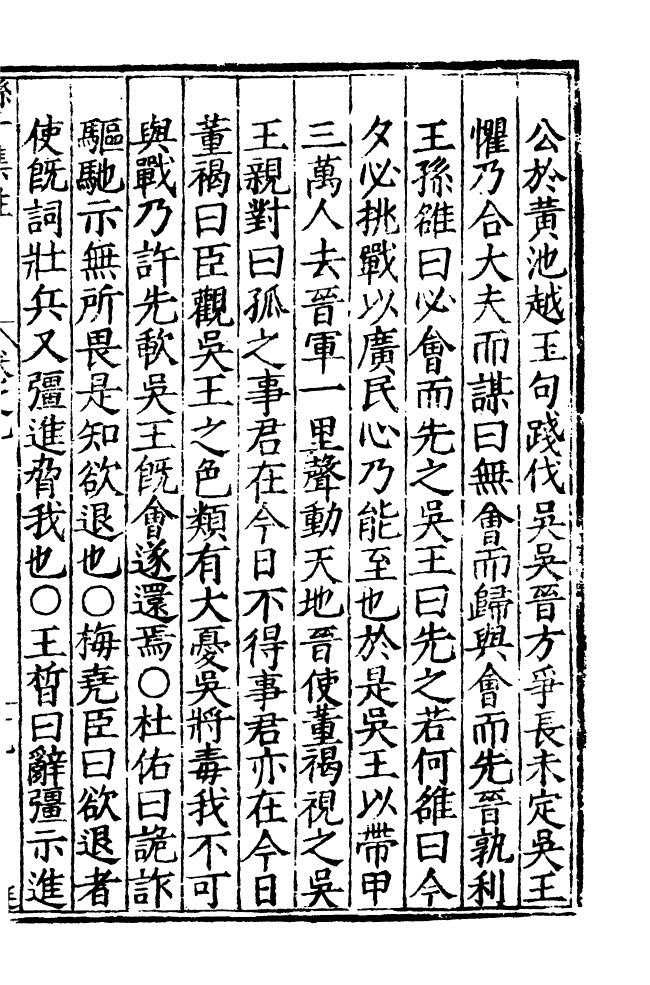 公於黃池越王句踐伐吳吳晉方爭長未定吳王
懼乃合大夫而謀曰無會而歸與會而先晉孰利
王孫雒曰必會而先之吳王曰先之若何雒曰今
夕必挑戰以廣民心乃能至也於是吳王以帶甲
三萬人去晉軍一里聲動天地晉使董褐視之吳
王親對曰孤之事君在今日不得事君亦在今日
董褐曰臣觀吳王之色類有大憂吳將毒我不可
與戰乃許先歃吳王旣會遂還焉○杜佑曰詭詐
驅馳示無所畏是知欲退也○梅堯臣曰欲退者
使旣詞壯兵又彊進脅我也○王晳曰辭彊示進